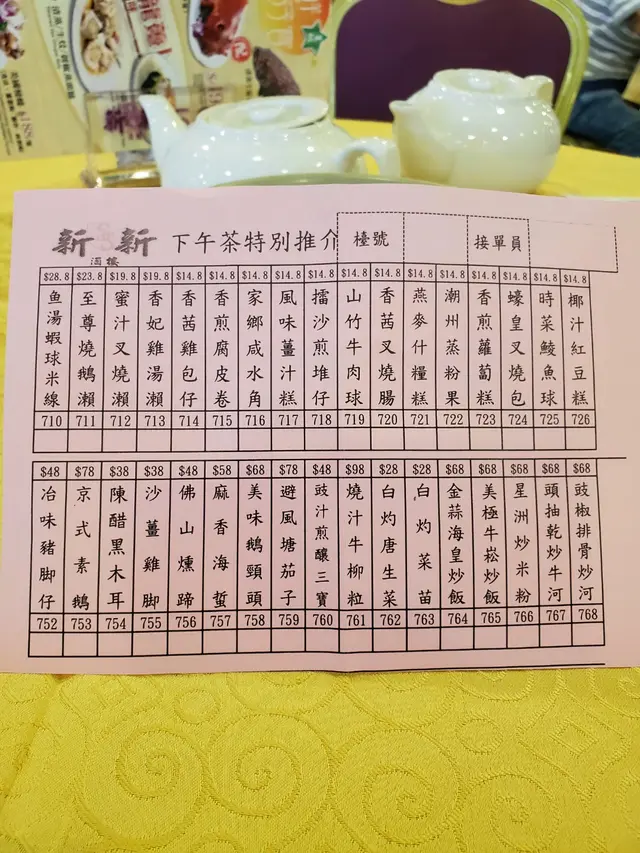 新新
酒樓
下午茶特別推介
檯號
接單員
$28.8 $23.8 $19.8 $19.8 $14.8 $14.8 $14.8 $14.8 $14.8 $14.8 $14.8 $14.8 $14.8 $14.8 $14.8 $14.8 $14.8
鱼湯蝦球米線
至尊燒鵝瀨
蜜汁叉燒瀨
香妃雞湯瀨
香茜雞包仔
香煎腐皮卷
家鄉咸水角
風味薑汁糕
擂沙煎堆仔
山竹牛肉球
香茜叉燒腸
燕麥什糧糕
潮州蒸粉果
香煎蘿蔔糕
蠔皇叉燒包
時菜鯪魚球
椰汁紅豆糕
710 711 712 713 714 715 716 717 718 719 720 721 722 723 724 725 726
$48 $78 $38 $38 $48 $58 $68 $78 $48 $98 $28 $28 $68 $68 $68 $68 $68
冶味豬脚仔
京式素鵝
陳醋黑木耳
沙薑雞脚
佛山燻蹄
麻香海蜇
美味鵝頸頭
避風塘茄子
豉汁煎釀三寶
燒汁牛柳粒
白灼唐生菜
白灼菜苗
金蒜海皇炒飯
美極牛崧炒飯
星洲炒米粉
頭抽乾炒牛河
豉椒排骨炒河
752 753 754 755 756 757 758 759 760 761 762 763 764 765 766 767 768